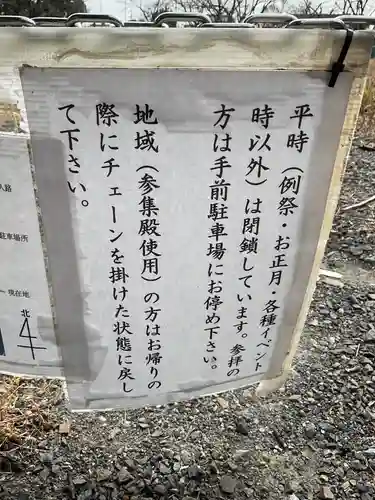 平時（例祭・お正月・各種イベント
時以外）は閉鎖しています。参拝の
方は手前駐車場にお停め下さい。
地域（参集殿使用）の方はお帰りの
際にチェーンを掛けた状態に戻し
て下さい。
入路
駐車場所
現在地
北